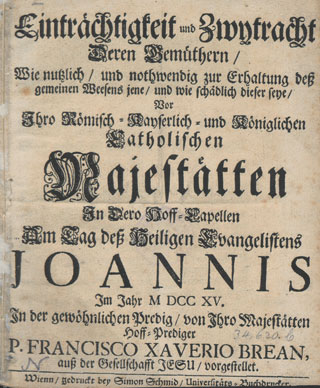 Einträchtigkeit und Zwytracht
Deren Gemüthern /
Wie nutzlich / und nothwendig zur Erhaltung deß
gemeinen Weesens jene / und wie schädlich dieser seye /
Vor
Ihro Römisch-Kayserlich- und Königlichen
Catholischen
Majestätten
In Dero Hoff-Capellen
Am Tag deß Heiligen Evangelistens
JOANNIS
Im Jahr M DCC XV.
In der gewöhnlichen Predig / von Ihro Majestätten
Hoff-Prediger
P. FRANCISCO XAVERIO BREAN,
auß der Gesellschafft JESU / vorgestellet.
Wienn / gedruckt bey Simon Schmid / Universitäts-Buchdrucker.